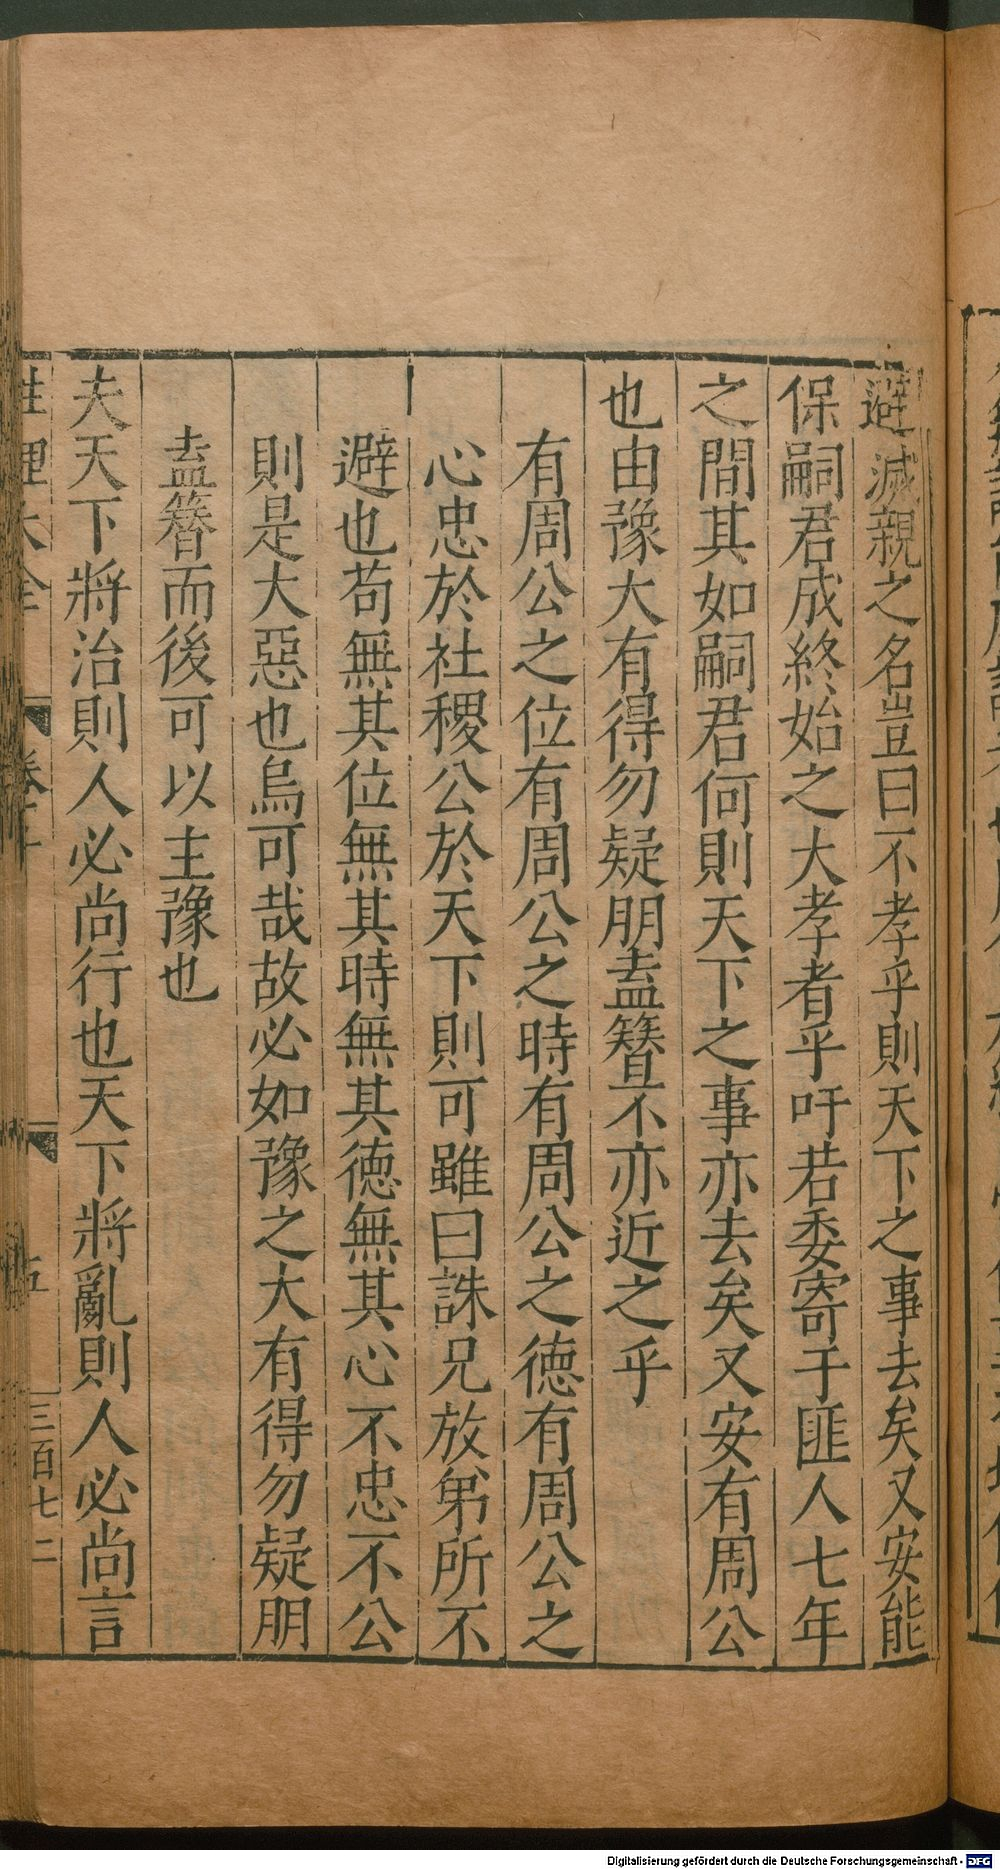 避滅親之名豈曰不孝乎則天下之事去矣又安能
保嗣君成終始之大孝者乎吁若委寄于匪人七年
之間其如嗣君何則天下之事亦去矣又安有周公
也由豫大有得勿疑朋盍簪不亦近之乎
有周公之位有周公之時有周公之德有周公之
心忠於社稷公於天下則可雖曰誅兄放弟所不
避也苟無其位無其時無其德無其心不忠不公
則是大惡也烏可哉故必如豫之大有得勿疑朋
盍簪而後可以主豫也
夫天下將治則人必尚行也天下將亂則人必尚言
性理大全
五
三百七二
Digitalisierung gefördert durch die Deutsche Forschungsgemeinschaft - DFG